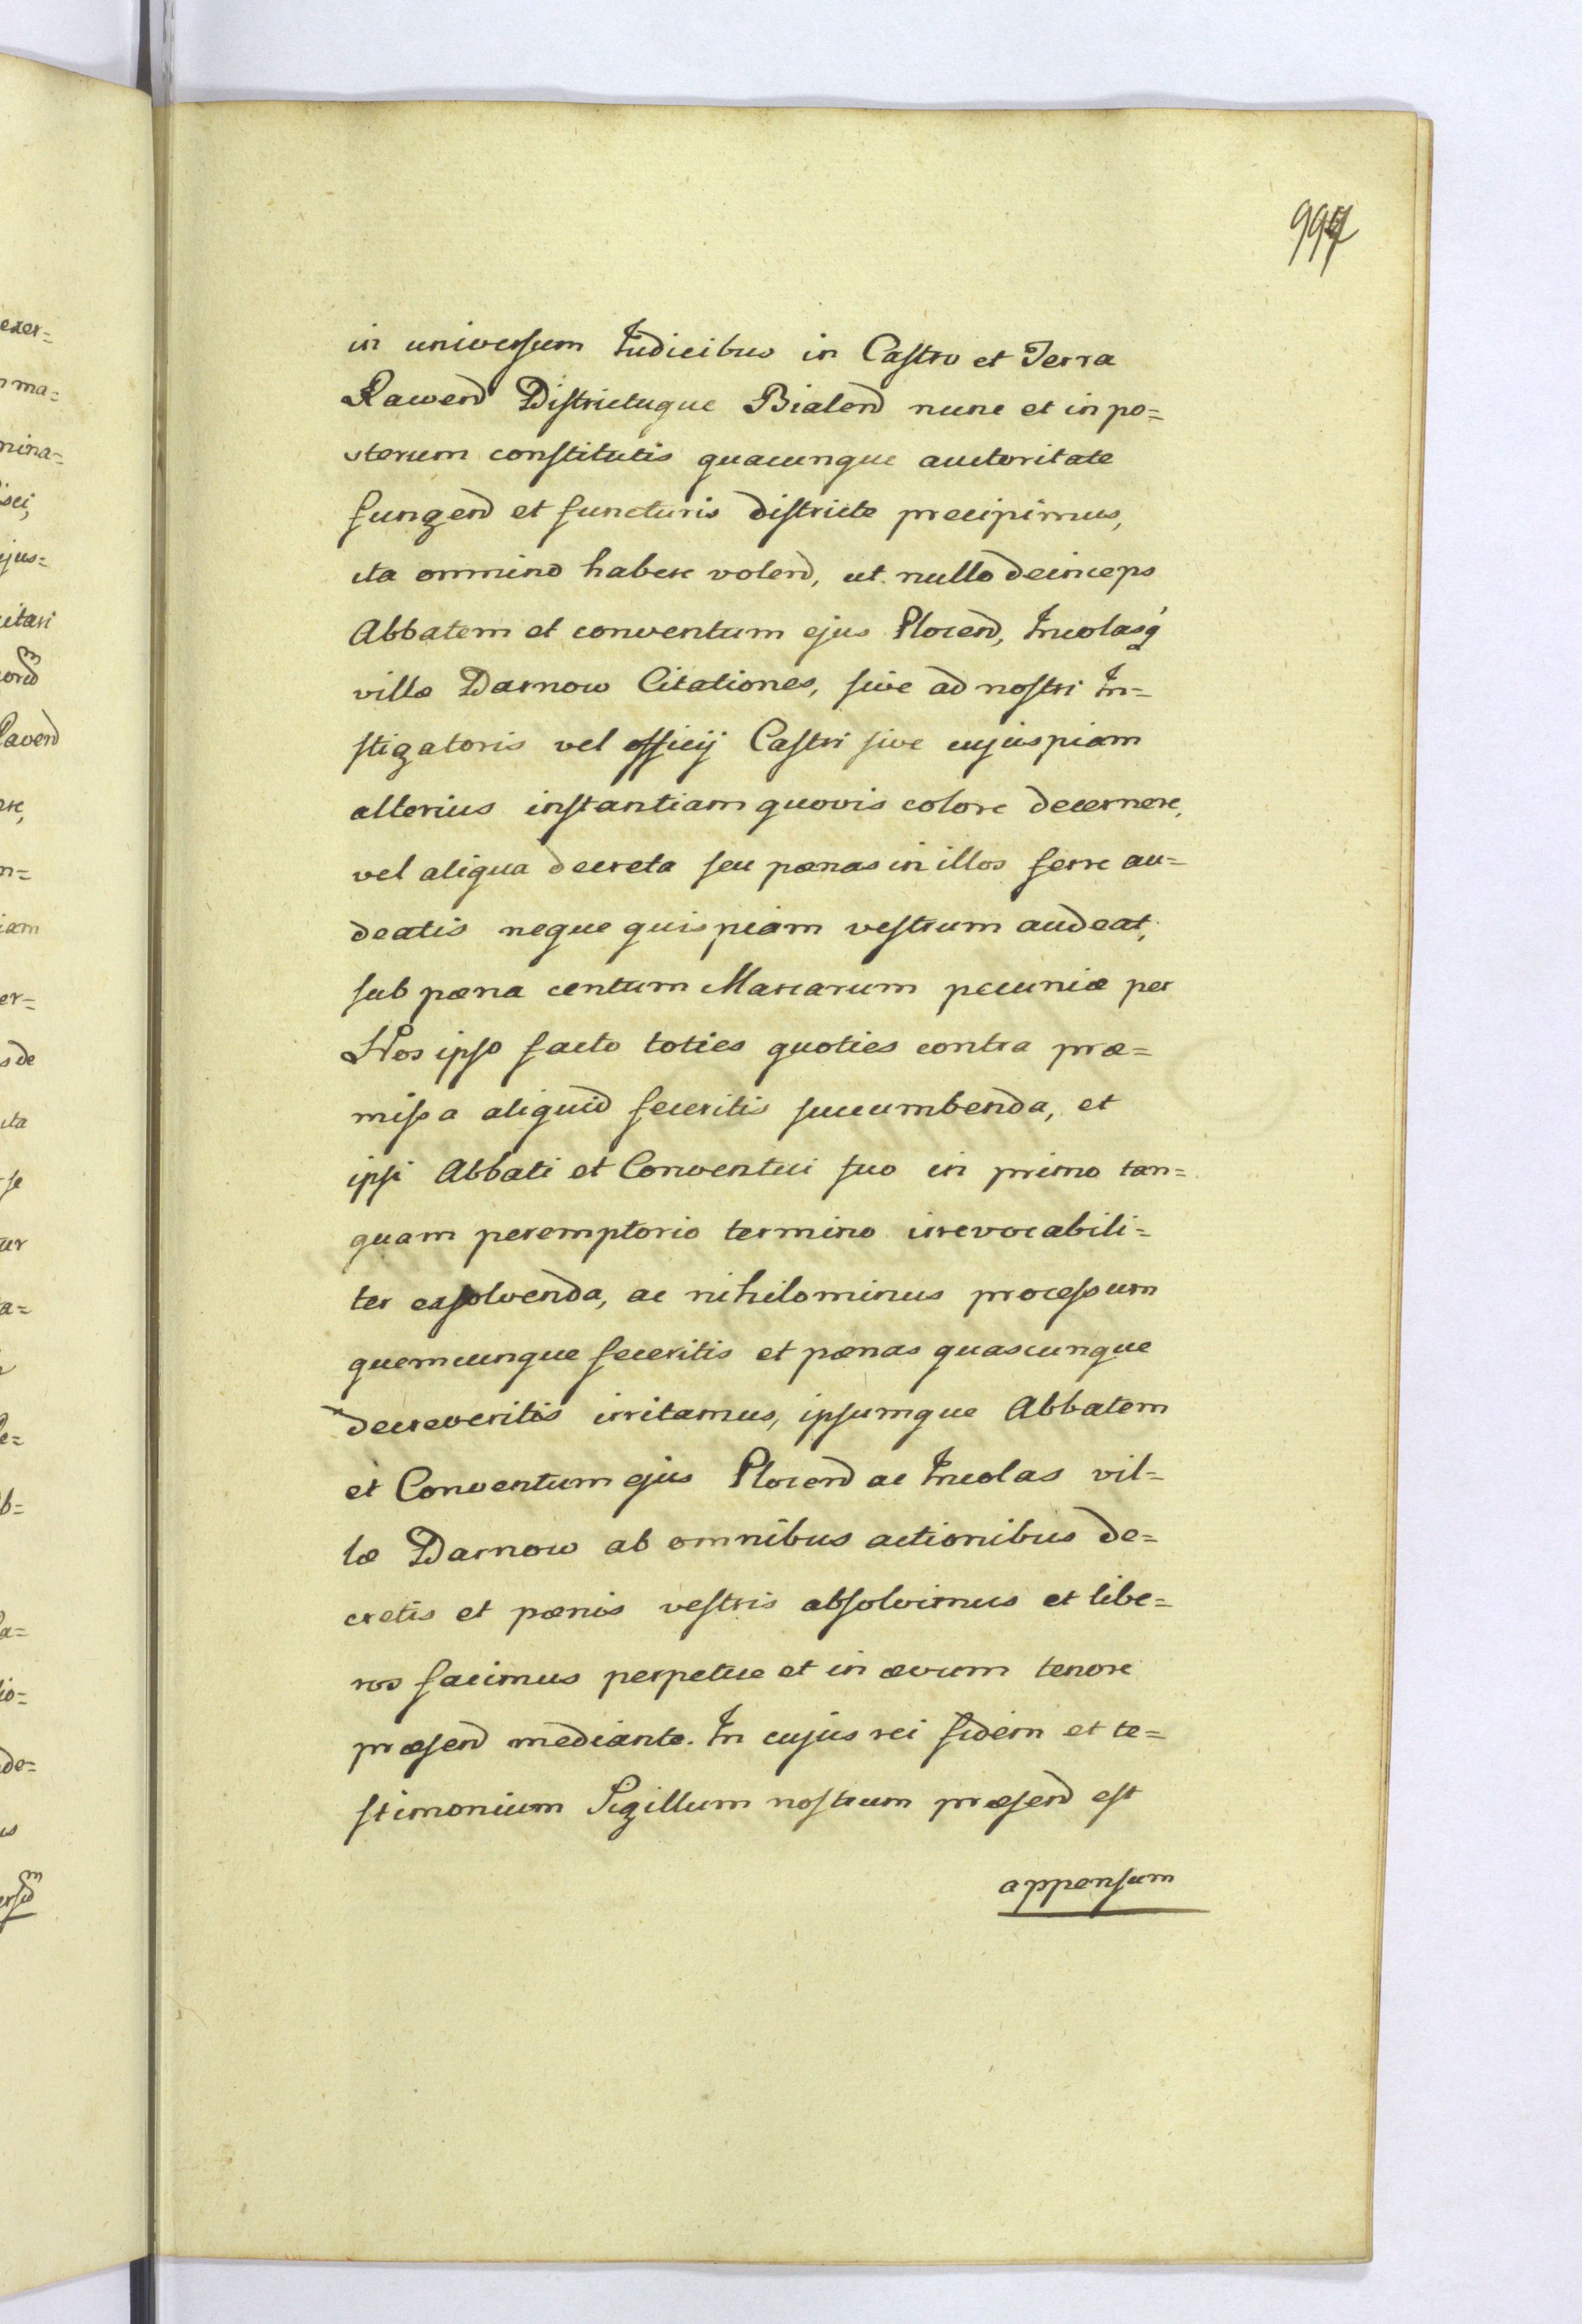 997
in universum Judicibus in Castro et Terra
Rawend Districtuque Bialend nunc et in po=
sterum constitutis quacunque auctoritate
fungend et functuris districte precipimus,
ita omnino habere volend, ut nullo deinceps
Abbatem et conventum ejus Plocend, Incolasq́
villæ Darnow Citationes, sive ad nostri In=
stigatoris vel officij Castri sive cujuspiam
alterius instantiam quovis colore decernere,
vel aliqua decreta seu pœnas in illos ferre au=
deatis neque quispiam vestrum audeat,
sub pœna centum Marcarum pecuniæ per
Vos ipso facto toties quoties contra præ=
missa aliquid feceritis succumbenda, et
ipsi Abbati et Conventui suo in primo tan=
quam peremptorio termino irrevocabili=
ter exsolvenda, ac nihilominus processum
quemcunque feceritis et pœnas quascunque
decreveritis irritamus, ipsumque Abbatem
et Conventum ejus Plocend ac Incolas vil=
læ Darnow ab omnibus actionibus de=
cretis et pœnis vestris absolvimus et libe=
ros facimus perpetue et in ævum tenore
præsend mediante. In cujus rei fidem et te=
stimonium Sigillum nostrum præsend est
appensum
exer=
ma=
mina=
isci,
ejus=
citari
Ravend
n=
iam
er=
s de
ita
se
ur
a=
e=
b=
a=
io=
de=
us